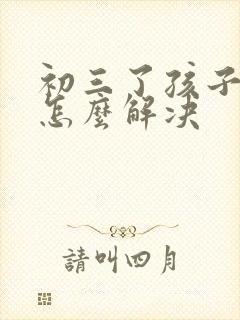 初三了孩子
怎麼解決
請叫四月